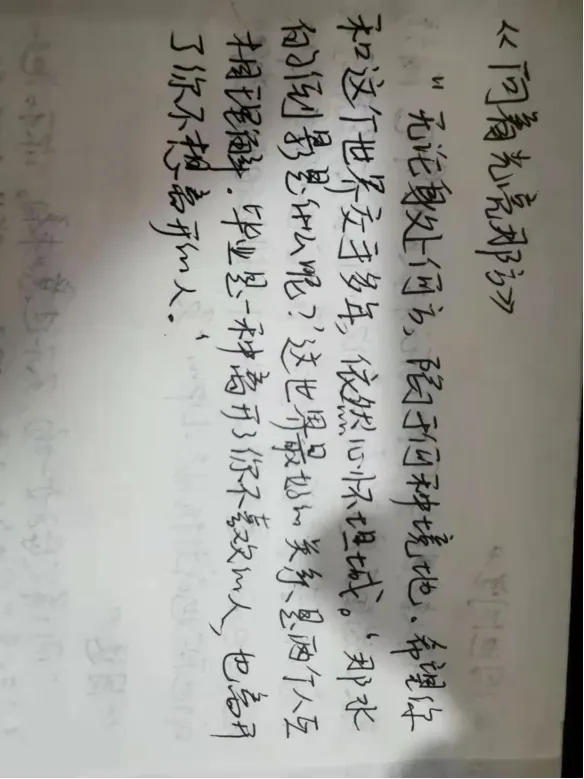 《向着光亮那方》
"无论身处何方,陷于何种境地.希望你
和这个世界交手多年,依然心怀坦诚。'那水
的倒影是什么呢?'这世界最好的关系是两个人互
相理解.毕业是一种离开了你不喜欢的人,也离开
了你不想离开的人.'